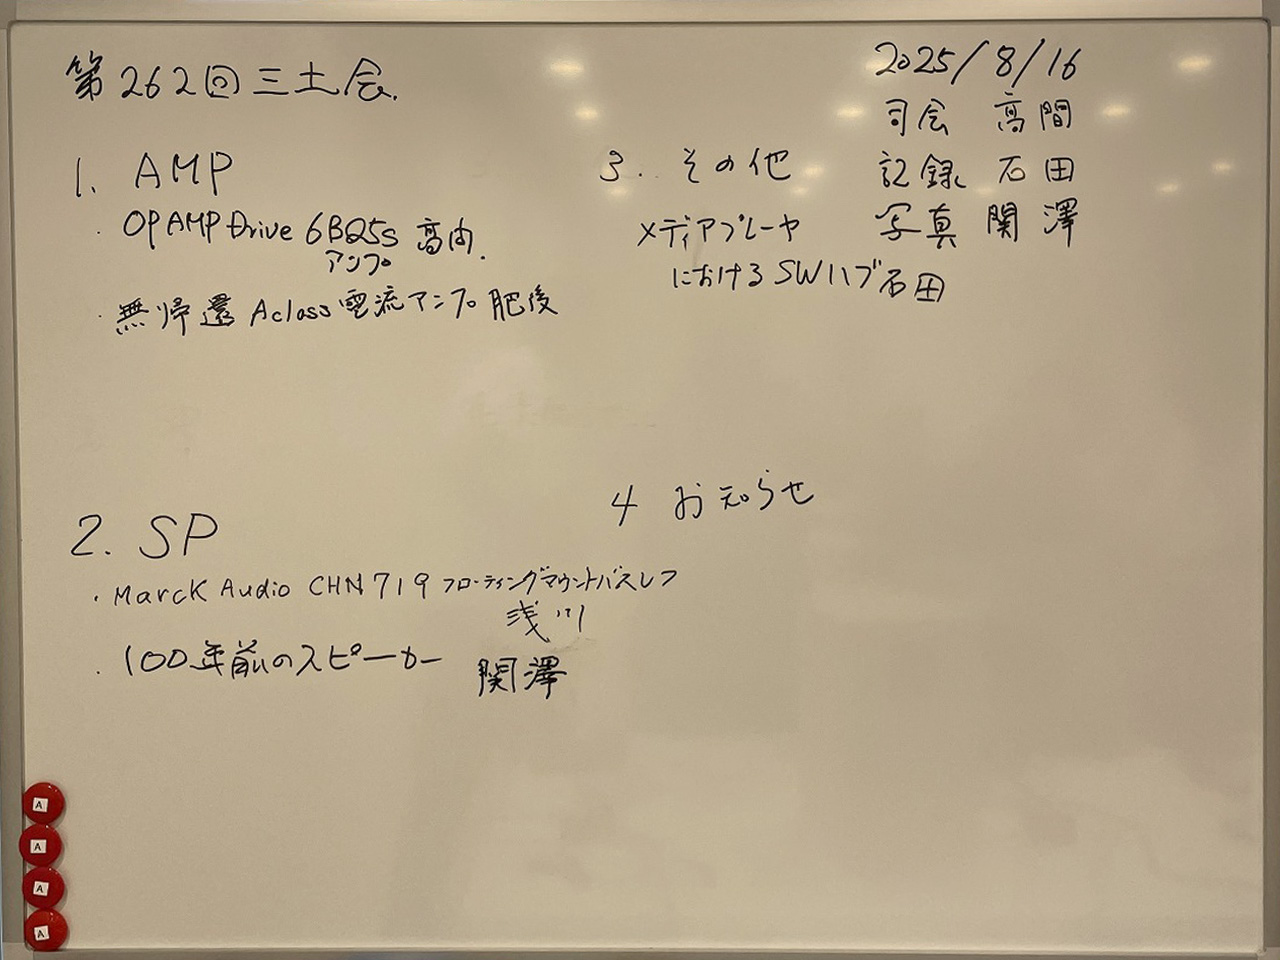 第262回三土会.
2025/8/16
司会 高間
記録 石田
写真 関澤
1. AMP
・OPAMP Drive 6BQ5s 高内.
アンプ
・無帰還 Aclass電流アンプ 肥後
2. SP
・Marck Audio CHN719 フローティングマウントバスレフ
浅川
・100年前のスピーカー 関澤
3. その他
メディアプレーヤ
におけるSWハブ石田
4 お知らせ
A
A
A
A